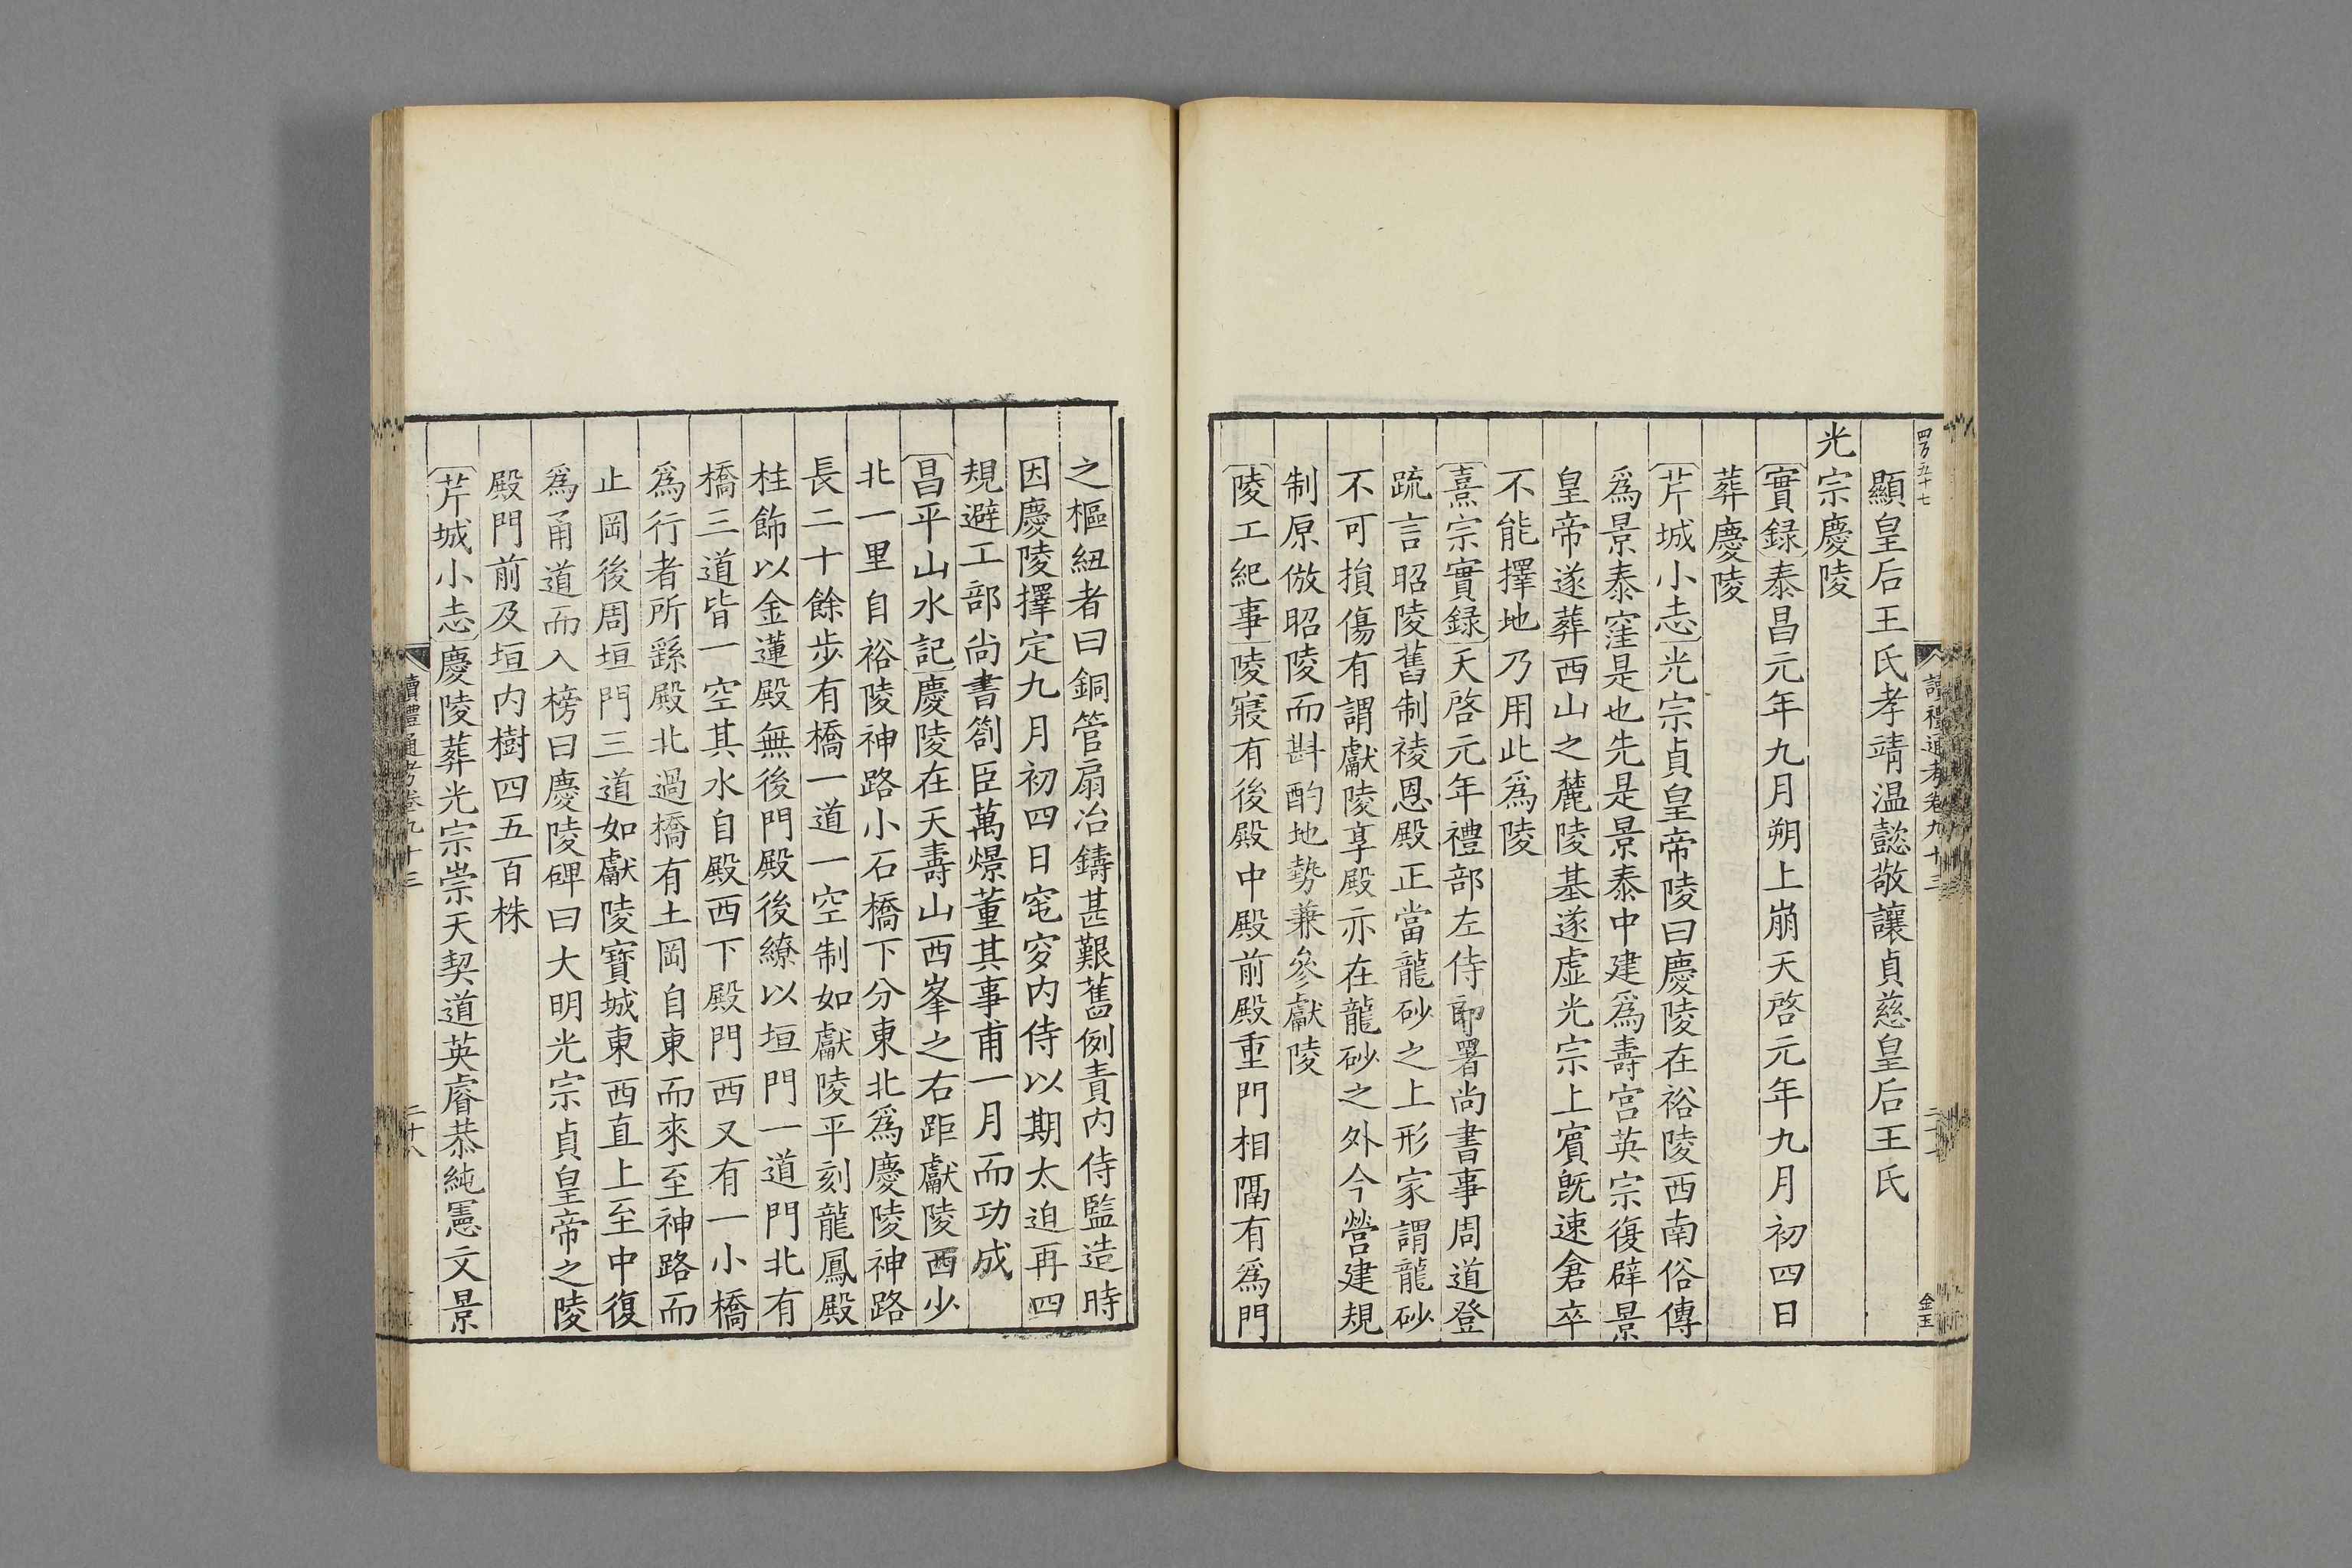 顯皇后王氏孝靖温懿敬讓貞慈皇后王氏
光宗慶陵
實録泰昌元年九月朔上崩天啓元年九月初四日
葬慶陵
芹城小志光宗貞皇帝陵曰慶陵在裕陵西南俗傳
爲景泰窪是也先是景泰中建爲壽宫英宗復辟景
皇帝遂葬西山之麓陵基遂虚光宗上賓旣速倉卒
不能擇地乃用此爲陵
熹宗實録天啓元年禮部左侍郎署尚書事周道登
疏言昭陵舊制祾恩殿正當龍砂之上形家謂龍砂
不可損傷有謂獻陵享殿亦在龍砂之外今營建規
制原倣昭陵而斟酌地勢兼參獻陵
陵工紀事陵寢有後殿中殿前殿重門相隔有爲門
之樞紐者曰銅管扇冶鑄甚艱舊例責内侍監造時
因慶陵擇定九月初四日窀穸内侍以期太迫再四
規避工部尚書劄臣萬燝董其事甫一月而功成
昌平山水記慶陵在天壽山西峯之右距獻陵西少
北一里自裕陵神路小石橋下分東北爲慶陵神路
長二十餘步有橋一道一空制如獻陵平刻龍鳳殿
柱飾以金蓮殿無後門殿後繚以垣門一道門北有
橋三道皆一空其水自殿西下殿門西又有一小橋
爲行者所繇殿北過橋有土岡自東而來至神路而
止岡後周垣門三道如獻陵寶城東西直上至中復
爲甬道而入榜曰慶陵碑曰大明光宗貞皇帝之陵
殿門前及垣内樹四五百株
芹城小志慶陵葬光宗崇天契道英睿恭純憲文景
讀禮通考卷九十三
二十八